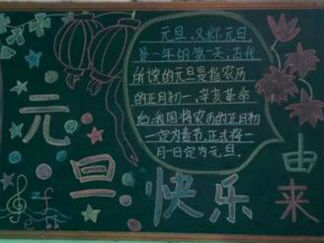 元旦,又称"元日"
是一年的第一天,古代
所说的元旦是指农历
的正月初一,辛亥革命
后我国将农历的正月初
一定为春节,正式将一
月一日定为元旦.
元旦快乐
由来